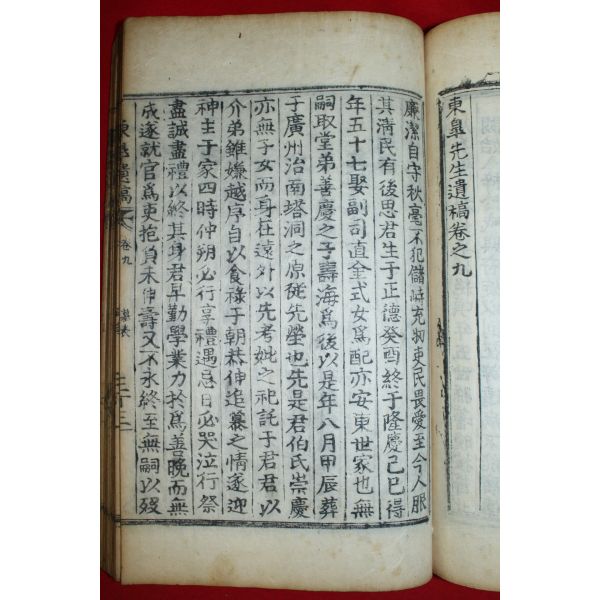 東皐先生遺稿卷之九
廉潔自守秋毫不犯儲峙充牣吏民畏愛至今人服
其清民有後思君生于正德癸酉終于隆慶己巳得
年五十七娶副司直金式女爲配亦安東世家也無
嗣取堂弟善慶之子壽海爲後以是年八月甲辰葬
于廣州治南塔洞之原從先塋也先是君伯氏崇慶
亦無子女而身在遠外以先考妣之祀託于君君以
介弟雖嫌越序自以食祿于朝恭伸追纂之情遂迎
神主于家四時仲朔必行享禮遇忌日必哭泣行祭
盡誠盡禮以終其身君早勤學業力於爲善晚而無
成遂就官爲吏抱負未伸壽又不永終至無嗣以歿
東皐遺稿
卷九
墓表